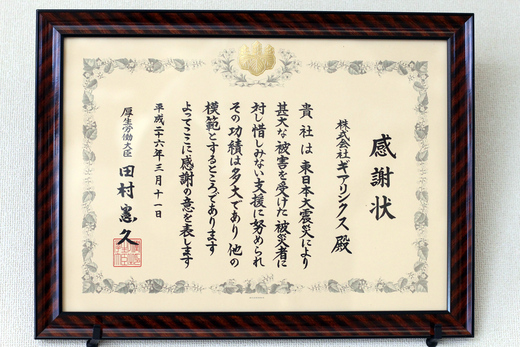 感謝状
株式会社ギアリンクス 殿
貴社は東日本大震災により
甚大な被害を受けた被災者に
対し惜しみない支援に努められ
その功績は多大であり他の
模範とするところであります
よってここに感謝の意を表します
平成二十六年三月十一日
厚生労働大臣 田村憲久